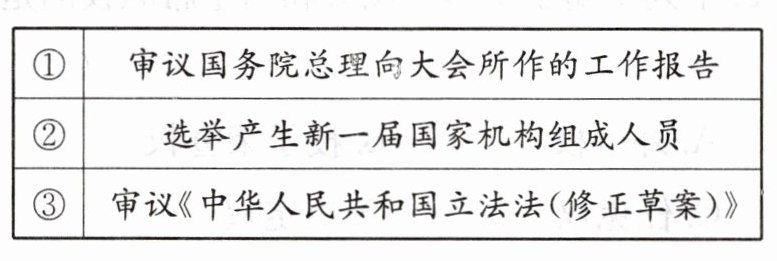 ① 审议国务院总理向大会所作的工作报告
② 选举产生新一届国家机构组成人员
③ 审议《中华人民共和国立法法(修正草案)》